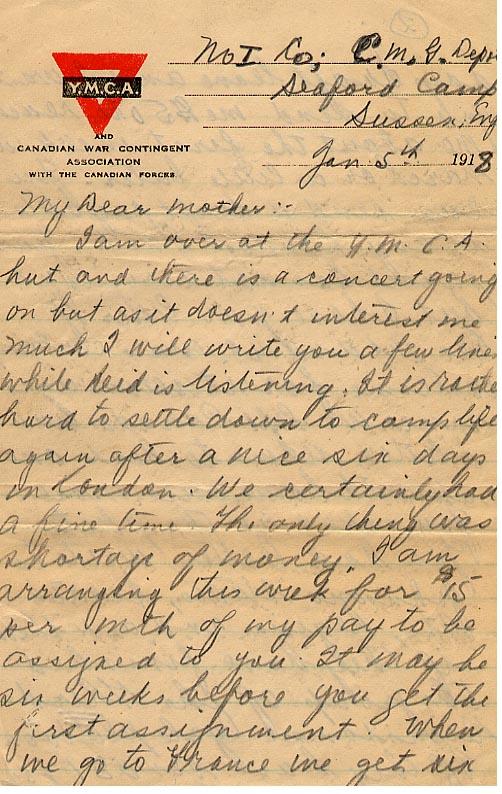 No I Co; C.M.G. Depo
Seaford Camp
Sussex, Eng
Jan 5th 1918
Y.M.C.A
AND
CANADIAN WAR CONTINGENT
ASSOCIATION
WITH THE CANADIAN FORCES
My Dear Mother:-
I am over at the Y.M.C.A.
hut and there is a concert going
on but as it doesn't interest me
much I will write you a few lines
while Reid is listening. It is rathe
hard to settle down to camp life
again after a nice six days
in London. We certainly had
a fine time. The only thing was
shortage of money. I am
arranging this week for $15
per mth of my pay to be
assigned to you. It may be
six weeks before you get the
first assignment. When
we go to France we get six